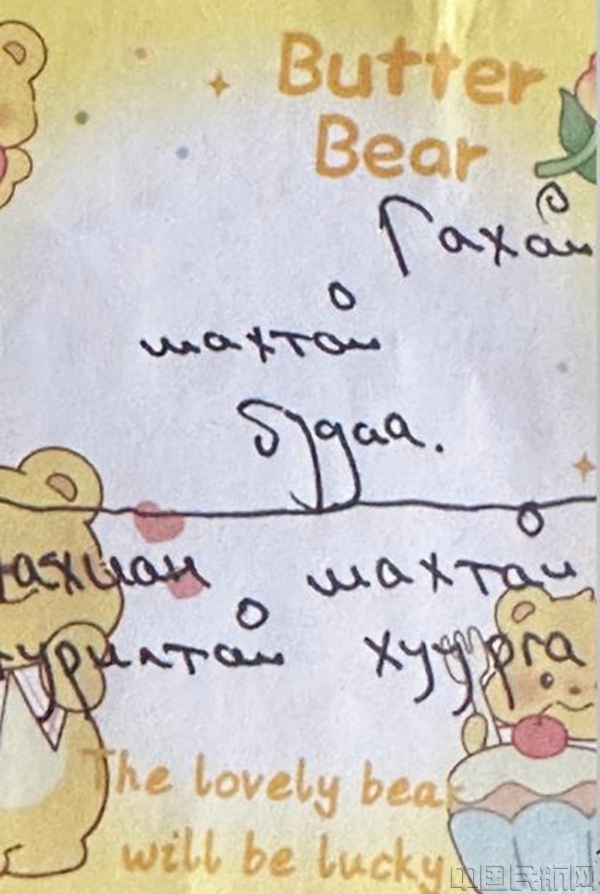 Butter
Bear
Гахай
махтай
будаа.
ахиан махтай
гурилтай хуурга
The lovely bear
will be lucky
中国民航网